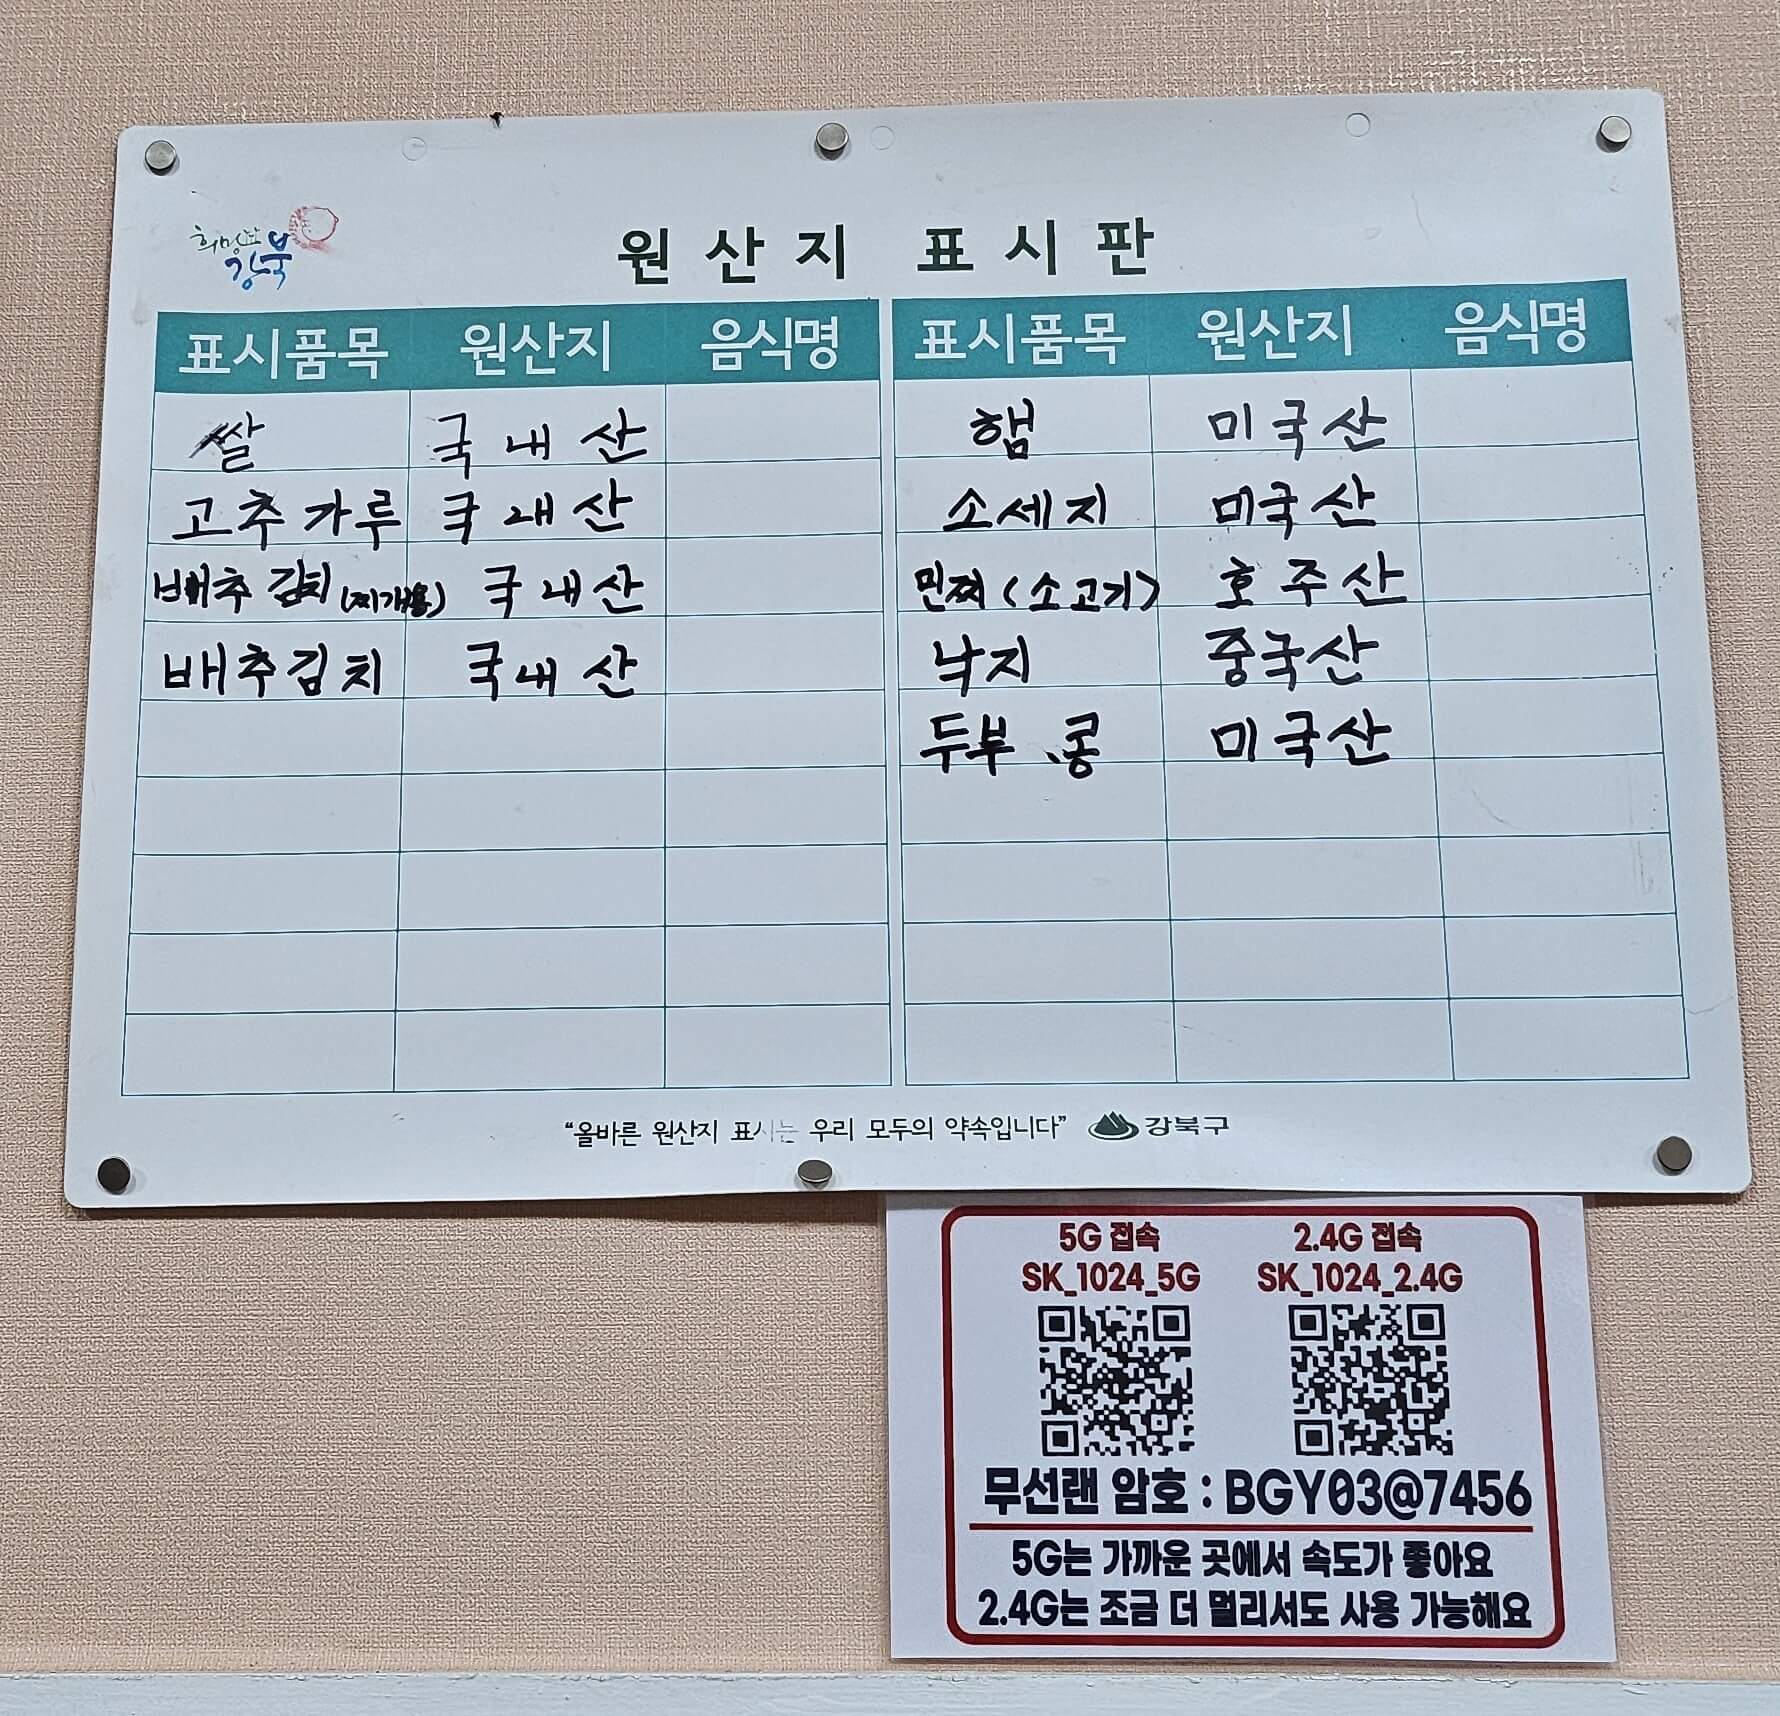 희망찬
강북
원산지 표시판
표시품목 원산지 음식명 표시품목 원산지 음식명
쌀 국내산 햄 미국산
고추가루 국내산 소세지 미국산
배추김치(찌개용) 국내산 민찌(소고기) 호주산
배추김치 국내산 낙지 중국산
두부.콩 미국산
“올바른 원산지 표시는 우리 모두의 약속입니다” 강북구
5G 접속 2.4G 접속
SK_1024_5G SK_1024_2.4G
무선랜 암호 : BGY03@7456
5G는 가까운 곳에서 속도가 좋아요
2.4G는 조금 더 멀리서도 사용 가능해요